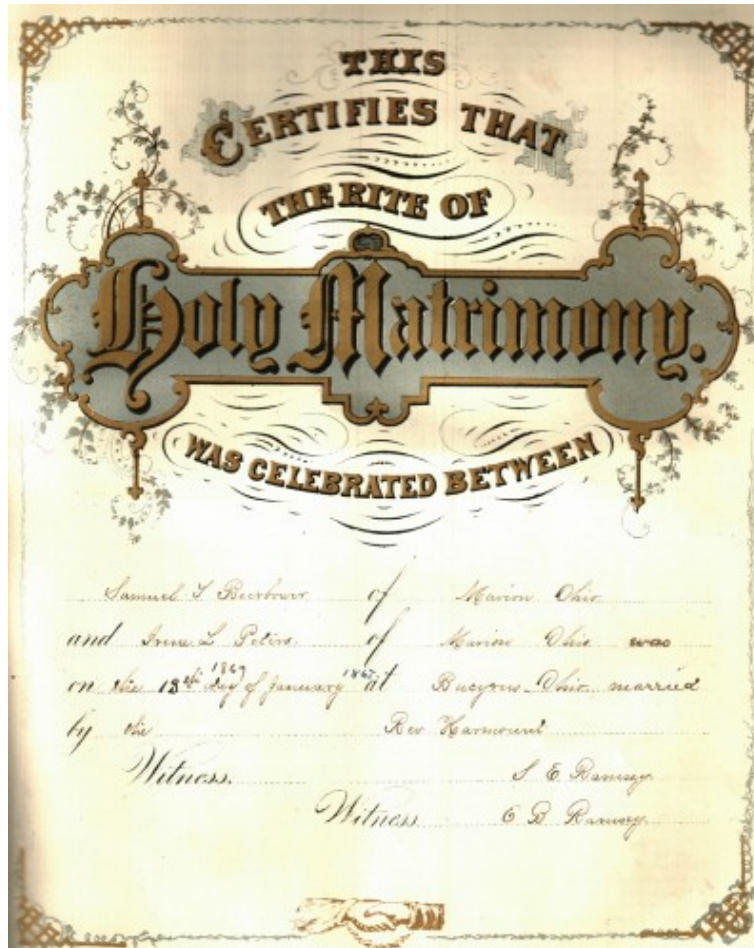 THIS
CERTIFIES THAT
THE RITE OF
Holy Matrimony.
WAS CELEBRATED BETWEEN
Samuel T Beerbower of Marion Ohio
and Irene L Peters of Marion Ohio was
1869 1867
on the 13th day of January at Bucyrus Ohio married
by the Rev Harmount
Witness. S E Ramsey
Witness O B Ramsey